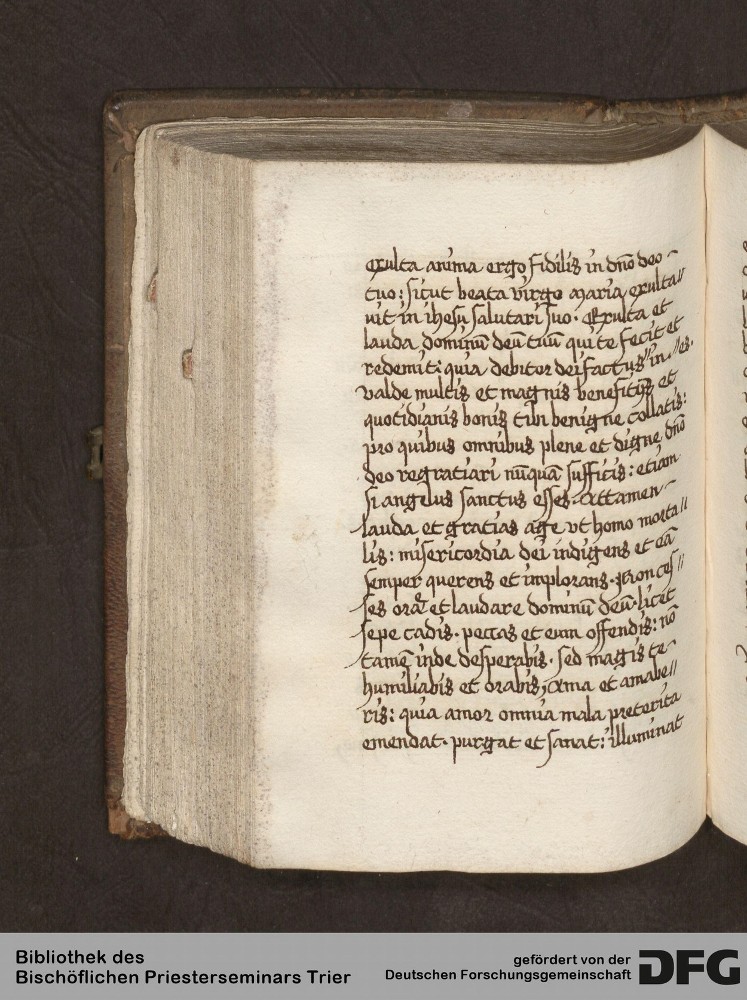 exulta anima ergo fidilis in dn̄o deo
tuo: sicut beata virgo maria exulta⸗
uit in ihesu salutari suo. Exulta et
lauda dominū deū tuū qui te fecit et
redemit: quia debitor dei factus in⸗es.
valde multis et magnis benefitijs et
quotidianis bonis tibi benigne collatis:
pro quibus omnibus plene et digne dn̄o
deo regratiari nūquā sufficis: etiam
si angelus sanctus esses. Attamen
lauda et gratias age vt homo morta⸗
lis: misericordia dei indigens et eā
semper querens et implorans. Non ces⸗
ses orar̄ et laudare dominū deū. licet
sepe cadis. peccas et eum offendis: nō
tamē inde desperabis. sed magis te
humiliabis et orabis, Ama et amabe⸗
ris: quia amor omnia mala preterita
emendat. purgat et sanat: illuminat
Bibliothek des
Bischöflichen Priesterseminars Trier
gefördert von der
Deutschen Forschungsgemeinschaft
DFG